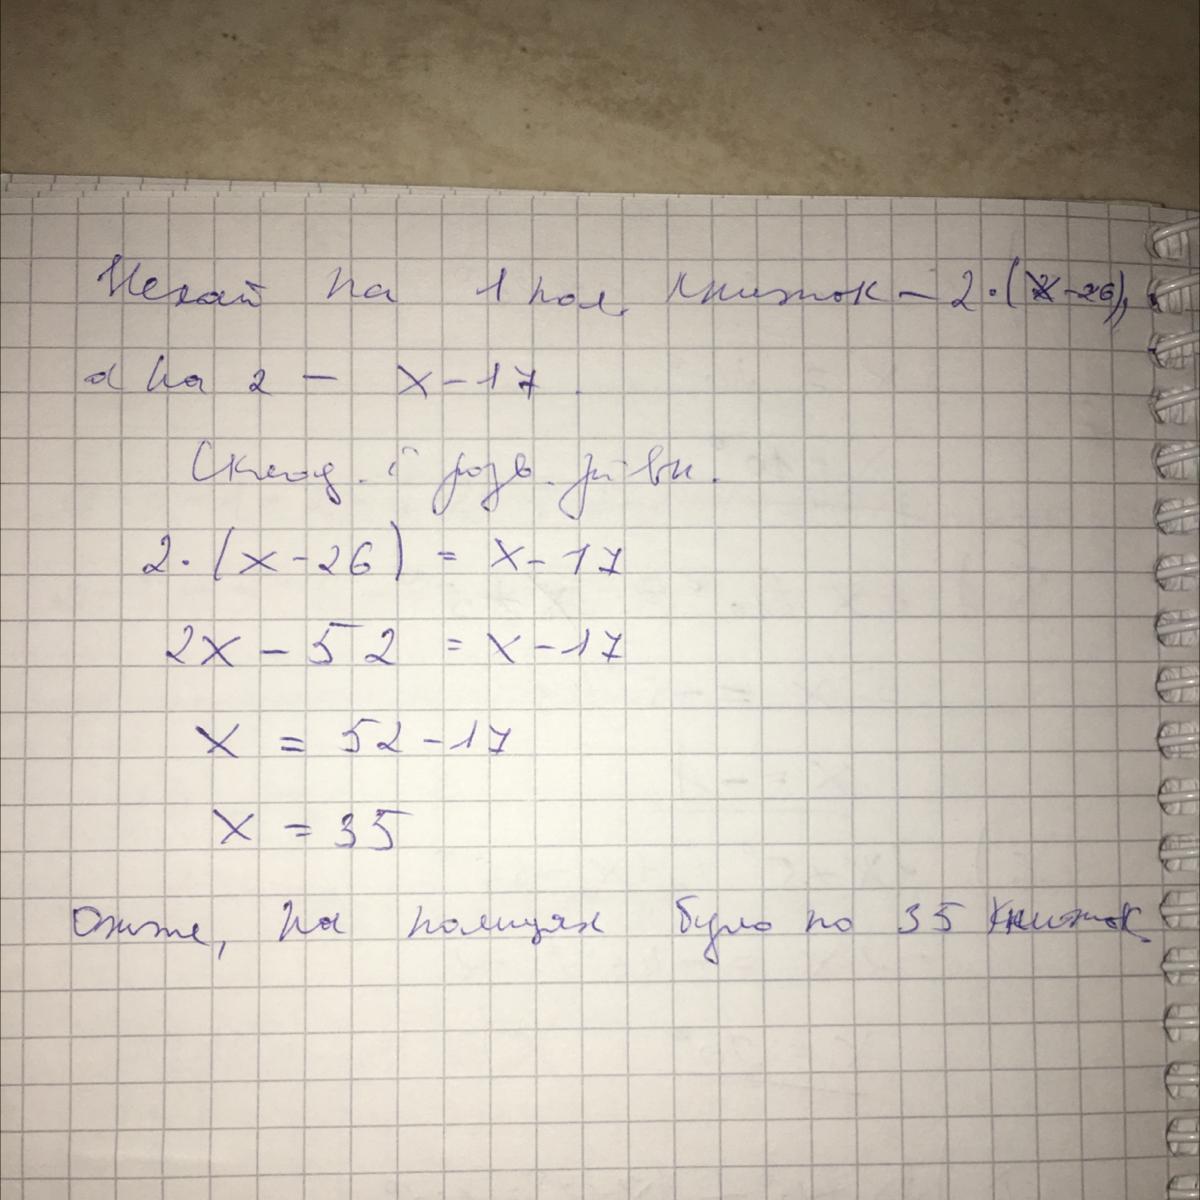 Нехай на 1 пол. книжок - 2·(x-26),
а на 2 - x-17.
Склад. і розв. рівн.
2·(x-26) = x-17
2x-52 = x-17
x = 52-17
x = 35
Отже, на полицях було по 35 книжок